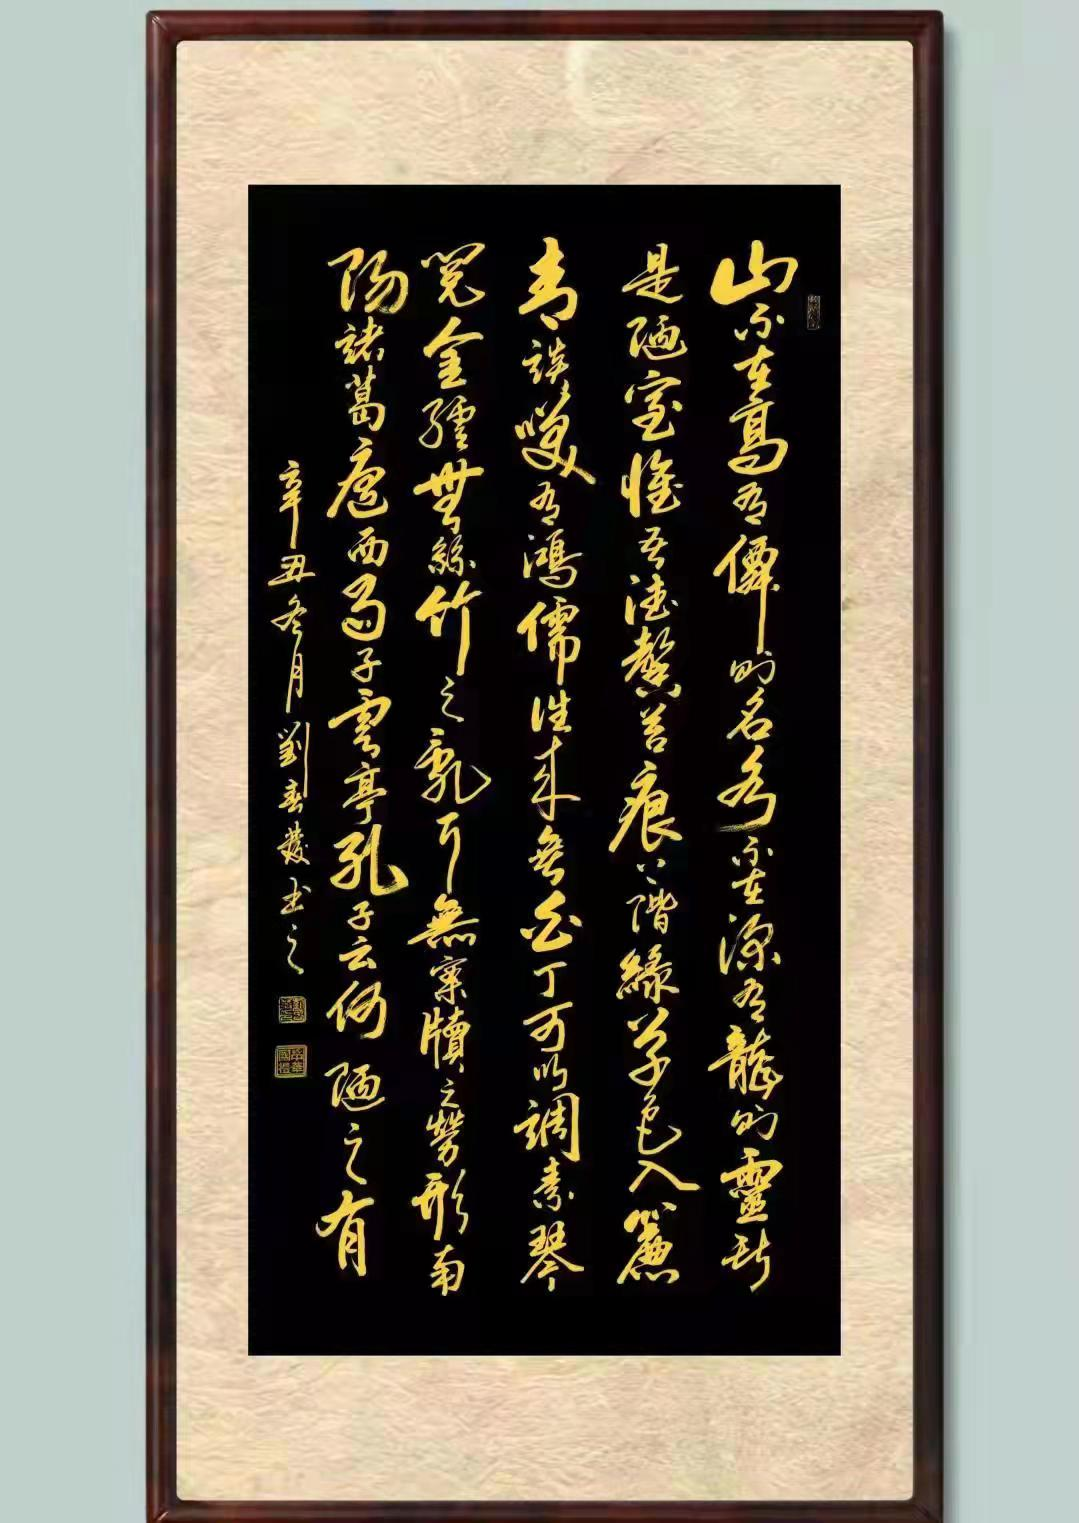 山不在高有僊則名水不在深有龍則靈斯
是陋室惟吾德馨苔痕上階綠草色入簾
青談笑有鴻儒往來無白丁可以調素琴
閱金經無絲竹之亂耳無案牘之勞形南
陽諸葛廬西蜀子雲亭孔子云何陋之有
辛丑冬月劉春發書之